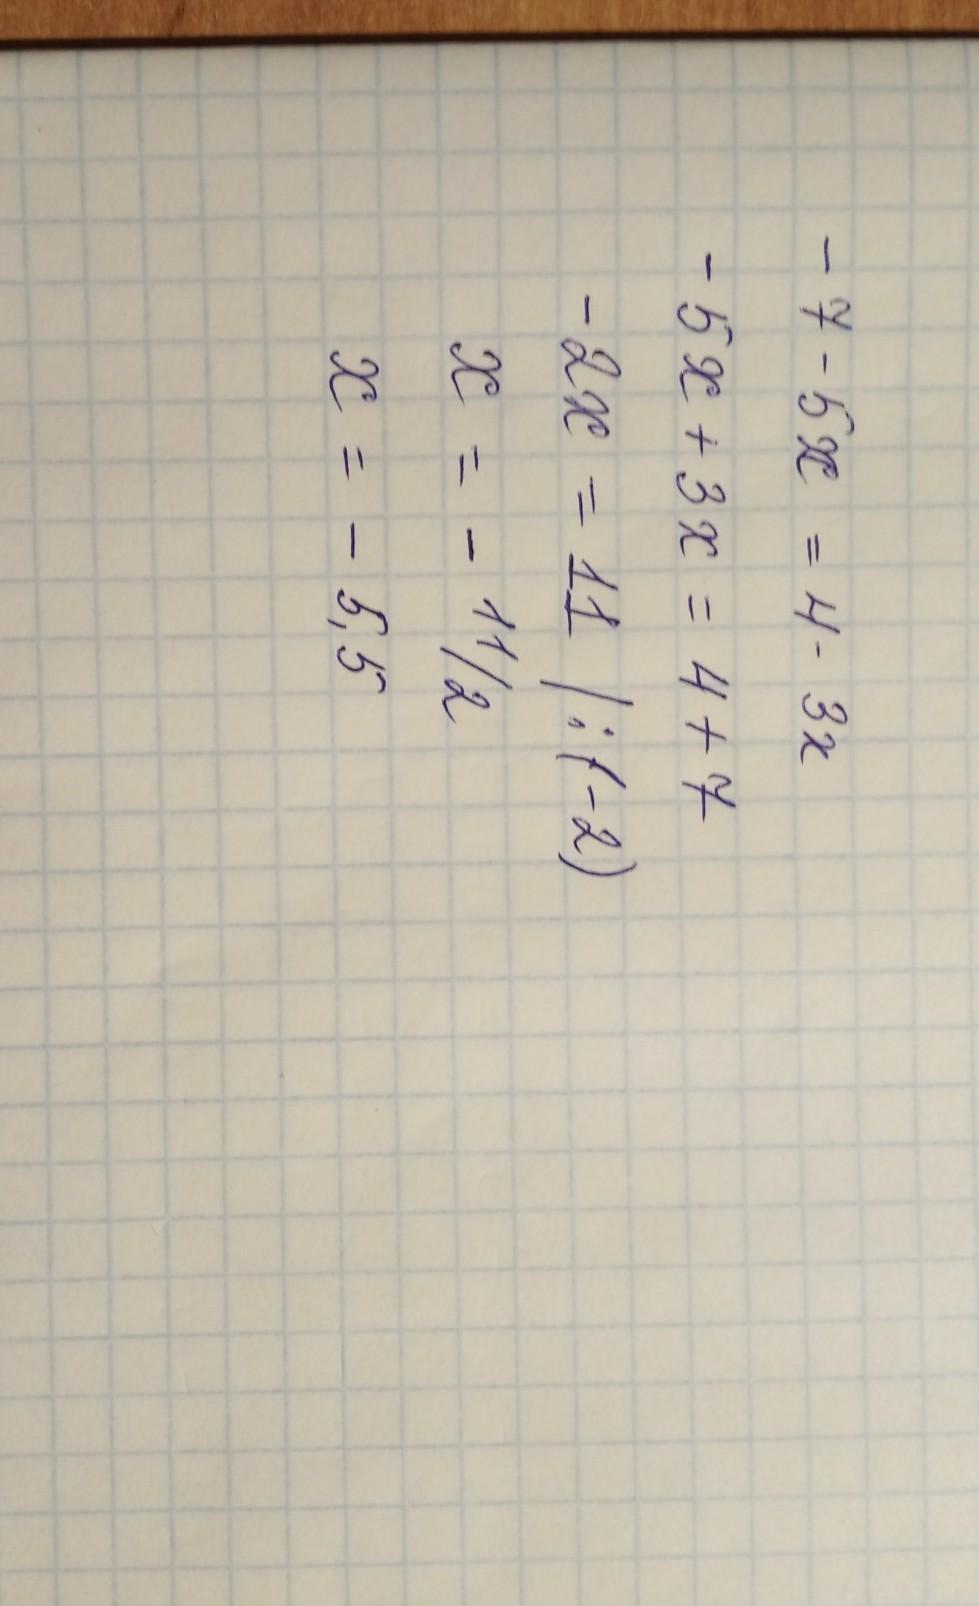 - 7 - 5x = 4 - 3x
- 5x + 3x = 4 + 7
- 2x = 11 | : (-2)
x = - 11/2
x = - 5,5